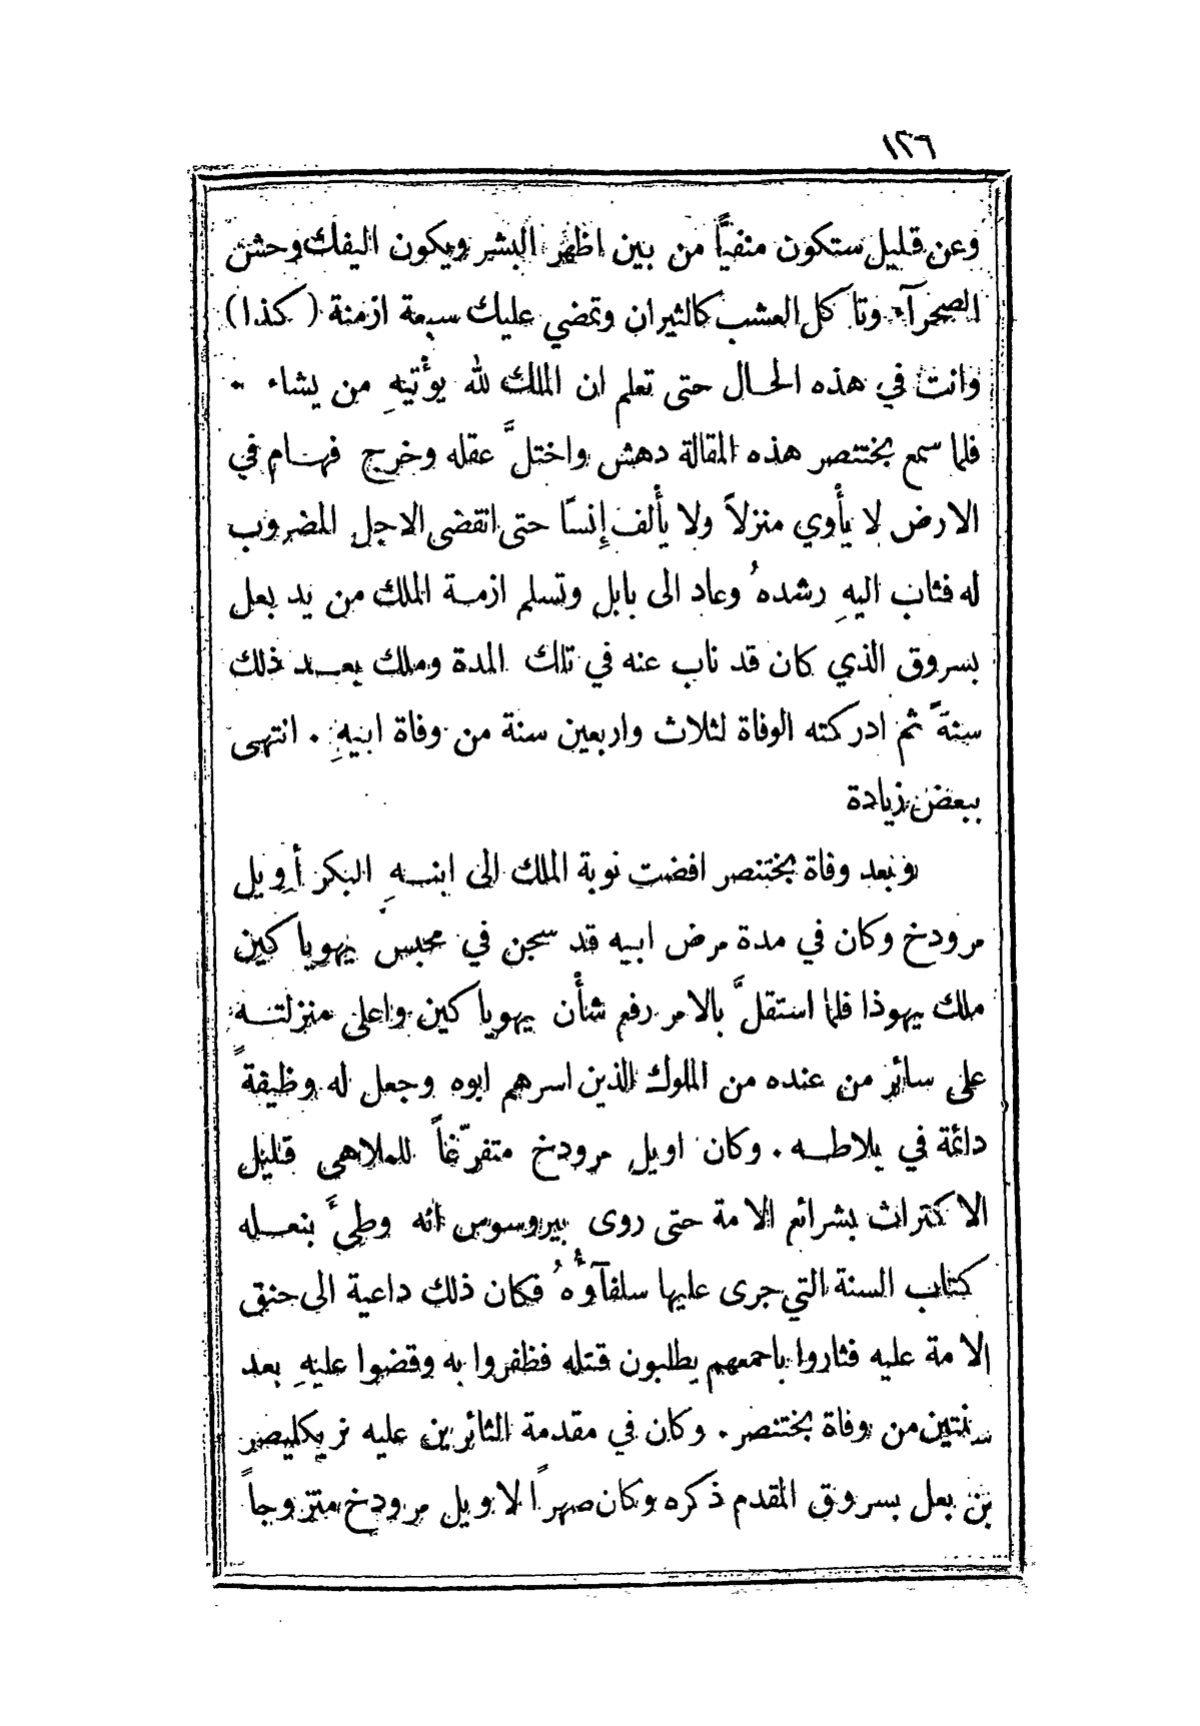 ١٢٦
وعن قليل ستكون منفيًّا من بين اظهر البشر ويكون اليفك وحش
الصحرآء وتاكل العشب كالثيران وتمضي عليك سبعة ازمنة (كذا)
وانت في هذه الحال حتى تعلم ان الملك لله يؤتيهِ من يشاء ..
فلما سمع بختنصر هذه المقالة دهش واختلَّ عقله وخرج فهام في
الارض لا يأوي منزلاً ولا يألف إنسًا حتى انقضى الاجل المضروب
له فثاب اليهِ رشدهُ وعاد الى بابل وتسلم ازمة الملك من يد بعل
بسروق الذي كان قد ناب عنه في تلك المدة وملك بعد ذلك
سنةً ثم ادركته الوفاة لثلاث واربعين سنة من وفاة ابيهِ . انتهى
ببعض زيادة
وبعد وفاة بختنصر افضت نوبة الملك الى ابنهِ البكر أويل
مرودخ وكان في مدة مرض ابيه قد سجن في محبس يهوياكين
ملك يهوذا فلما استقلَّ بالامر رفع شأن يهوياكين واعلى منزلته
على سائر من عنده من الملوك الذين اسرهم ابوه وجعل له وظيفةً
دائمة في بلاطه . وكان اويل مرودخ متفرّغاً للملاهي قليل
الاكتراث بشرائع الامة حتى روى بيروسوس انه وطئَ بنعله
كتاب السنة التي جرى عليها سلفآؤُهُ فكان ذلك داعية الى حنق
الامة عليه فثاروا باجمعهم يطلبون قتله فظفروا به وقضوا عليهِ بعد
سنتين من وفاة بختنصر . وكان في مقدمة الثائرين عليه نريكليصر
بن بعل بسروق المقدم ذكره وكان صهراً لاويل مرودخ متزوجاً